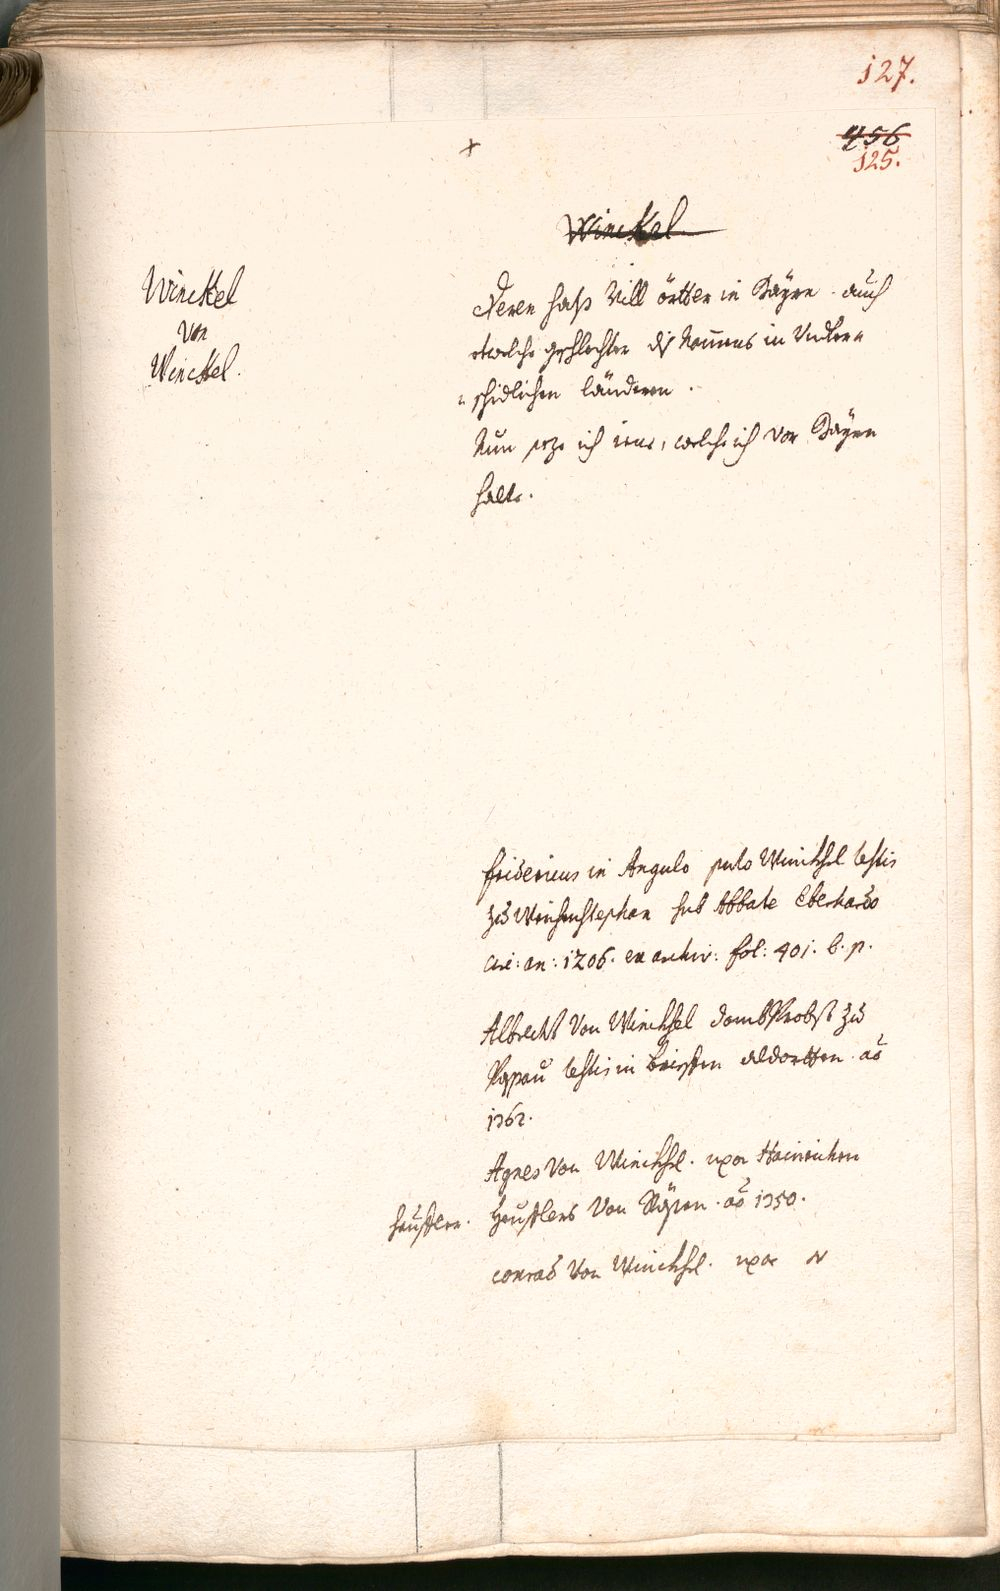 127.
456
125.
+
Winckel
Winckel
von
Winckel.
Deren hat Vill örtter in Bäyrn. auch
etwelche geschlechter diß Namens in Vnder=
=schidlichen länderen.
Nun seze ich iene, welche ich von Bäyrn
halte.
fridericus in Angulo puto Winckhel testis
zu Weichenstephan sub Abbate Eberhardo
circ: an: 1206. ex archiv: fol: 401. b. p.
Albrecht von Winckhel dombProbst zu
Passau testis in brieffen aldortten. aō
1362.
Agnes von Winckhel. uxor Hainrichen
heuslers von . aō 1350.
heusler.
conrad von Winckhel. uxor N